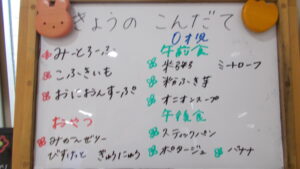 きょうの こんだて
みーとろーふ
こふきいも
おにおんすーぷ
おやつ
みかんゼリー
びすけっと ぎゅうにゅう
0才児
午前食
ミートローフ
粉ふき芋
オニオンスープ
午後食
スティックパン
ポタージュ バナナ